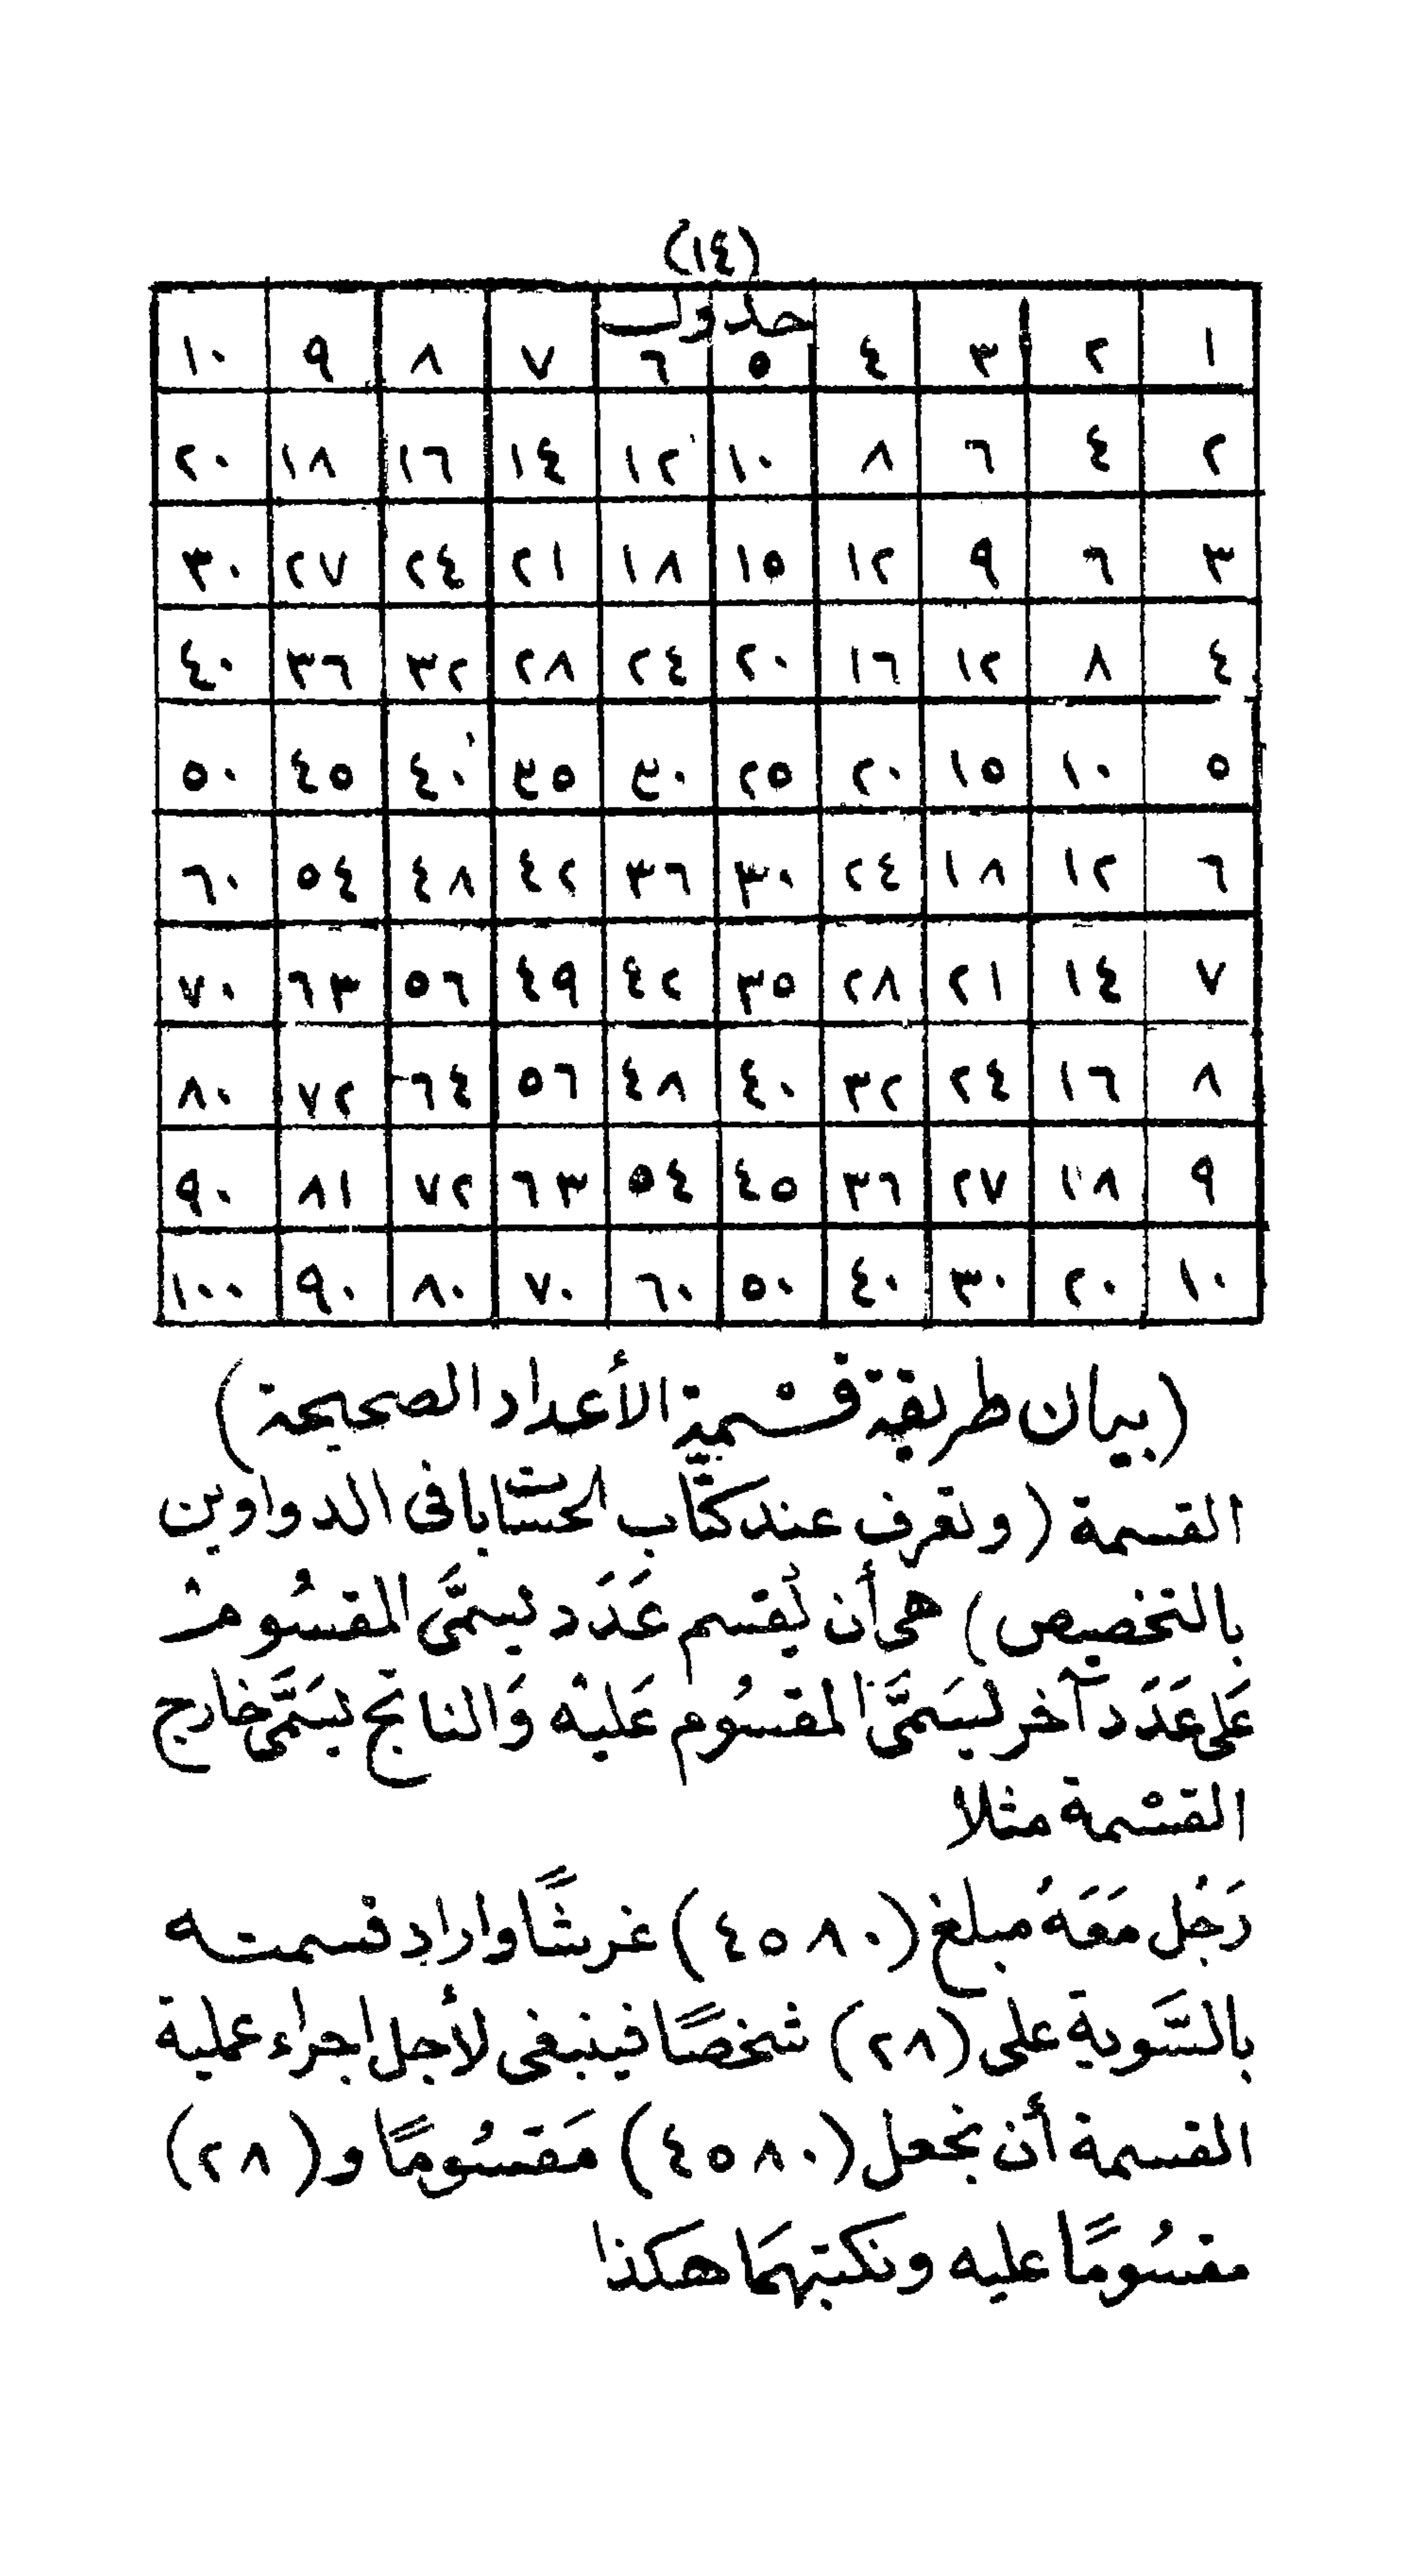 (١٤)
جدول
١ ٢ ٣ ٤ ٥ ٦ ٧ ٨ ٩ ١٠
٢ ٤ ٦ ٨ ١٠ ١٢ ١٤ ١٦ ١٨ ٢٠
٣ ٦ ٩ ١٢ ١٥ ١٨ ٢١ ٢٤ ٢٧ ٣٠
٤ ٨ ١٢ ١٦ ٢٠ ٢٤ ٢٨ ٣٢ ٣٦ ٤٠
٥ ١٠ ١٥ ٢٠ ٢٥ ٣٠ ٣٥ ٤٠ ٤٥ ٥٠
٦ ١٢ ١٨ ٢٤ ٣٠ ٣٦ ٤٢ ٤٨ ٥٤ ٦٠
٧ ١٤ ٢١ ٢٨ ٣٥ ٤٢ ٤٩ ٥٦ ٦٣ ٧٠
٨ ١٦ ٢٤ ٣٢ ٤٠ ٤٨ ٥٦ ٦٤ ٧٢ ٨٠
٩ ١٨ ٢٧ ٣٦ ٤٥ ٥٤ ٦٣ ٧٢ ٨١ ٩٠
١٠ ٢٠ ٣٠ ٤٠ ٥٠ ٦٠ ٧٠ ٨٠ ٩٠ ١٠٠
(بيان طريقة قسْمة الأعداد الصحيحة)
القسمة (وتعرف عند كتّاب الحسابات فى الدواوين
بالتخصيص) هى أن يُقسم عَدَد يسمَّى المقسُومْ
عَلى عَدَد آخر يسَمَّى المقسُوم عَليْه وَالناتج يسَمَّى خارج
القسْمة مثلا
رَجُل مَعَهُ مبلغ (٤٥٨٠) غرشًا واراد قسمته
بالسَّوية على (٢٨) شخصًا فينبغى لأجل اجراء عملية
القسمة أن نجعل (٤٥٨٠) مَقسُومًا و (٢٨)
مقسُومًا عليه ونكتبهمَا هكذا